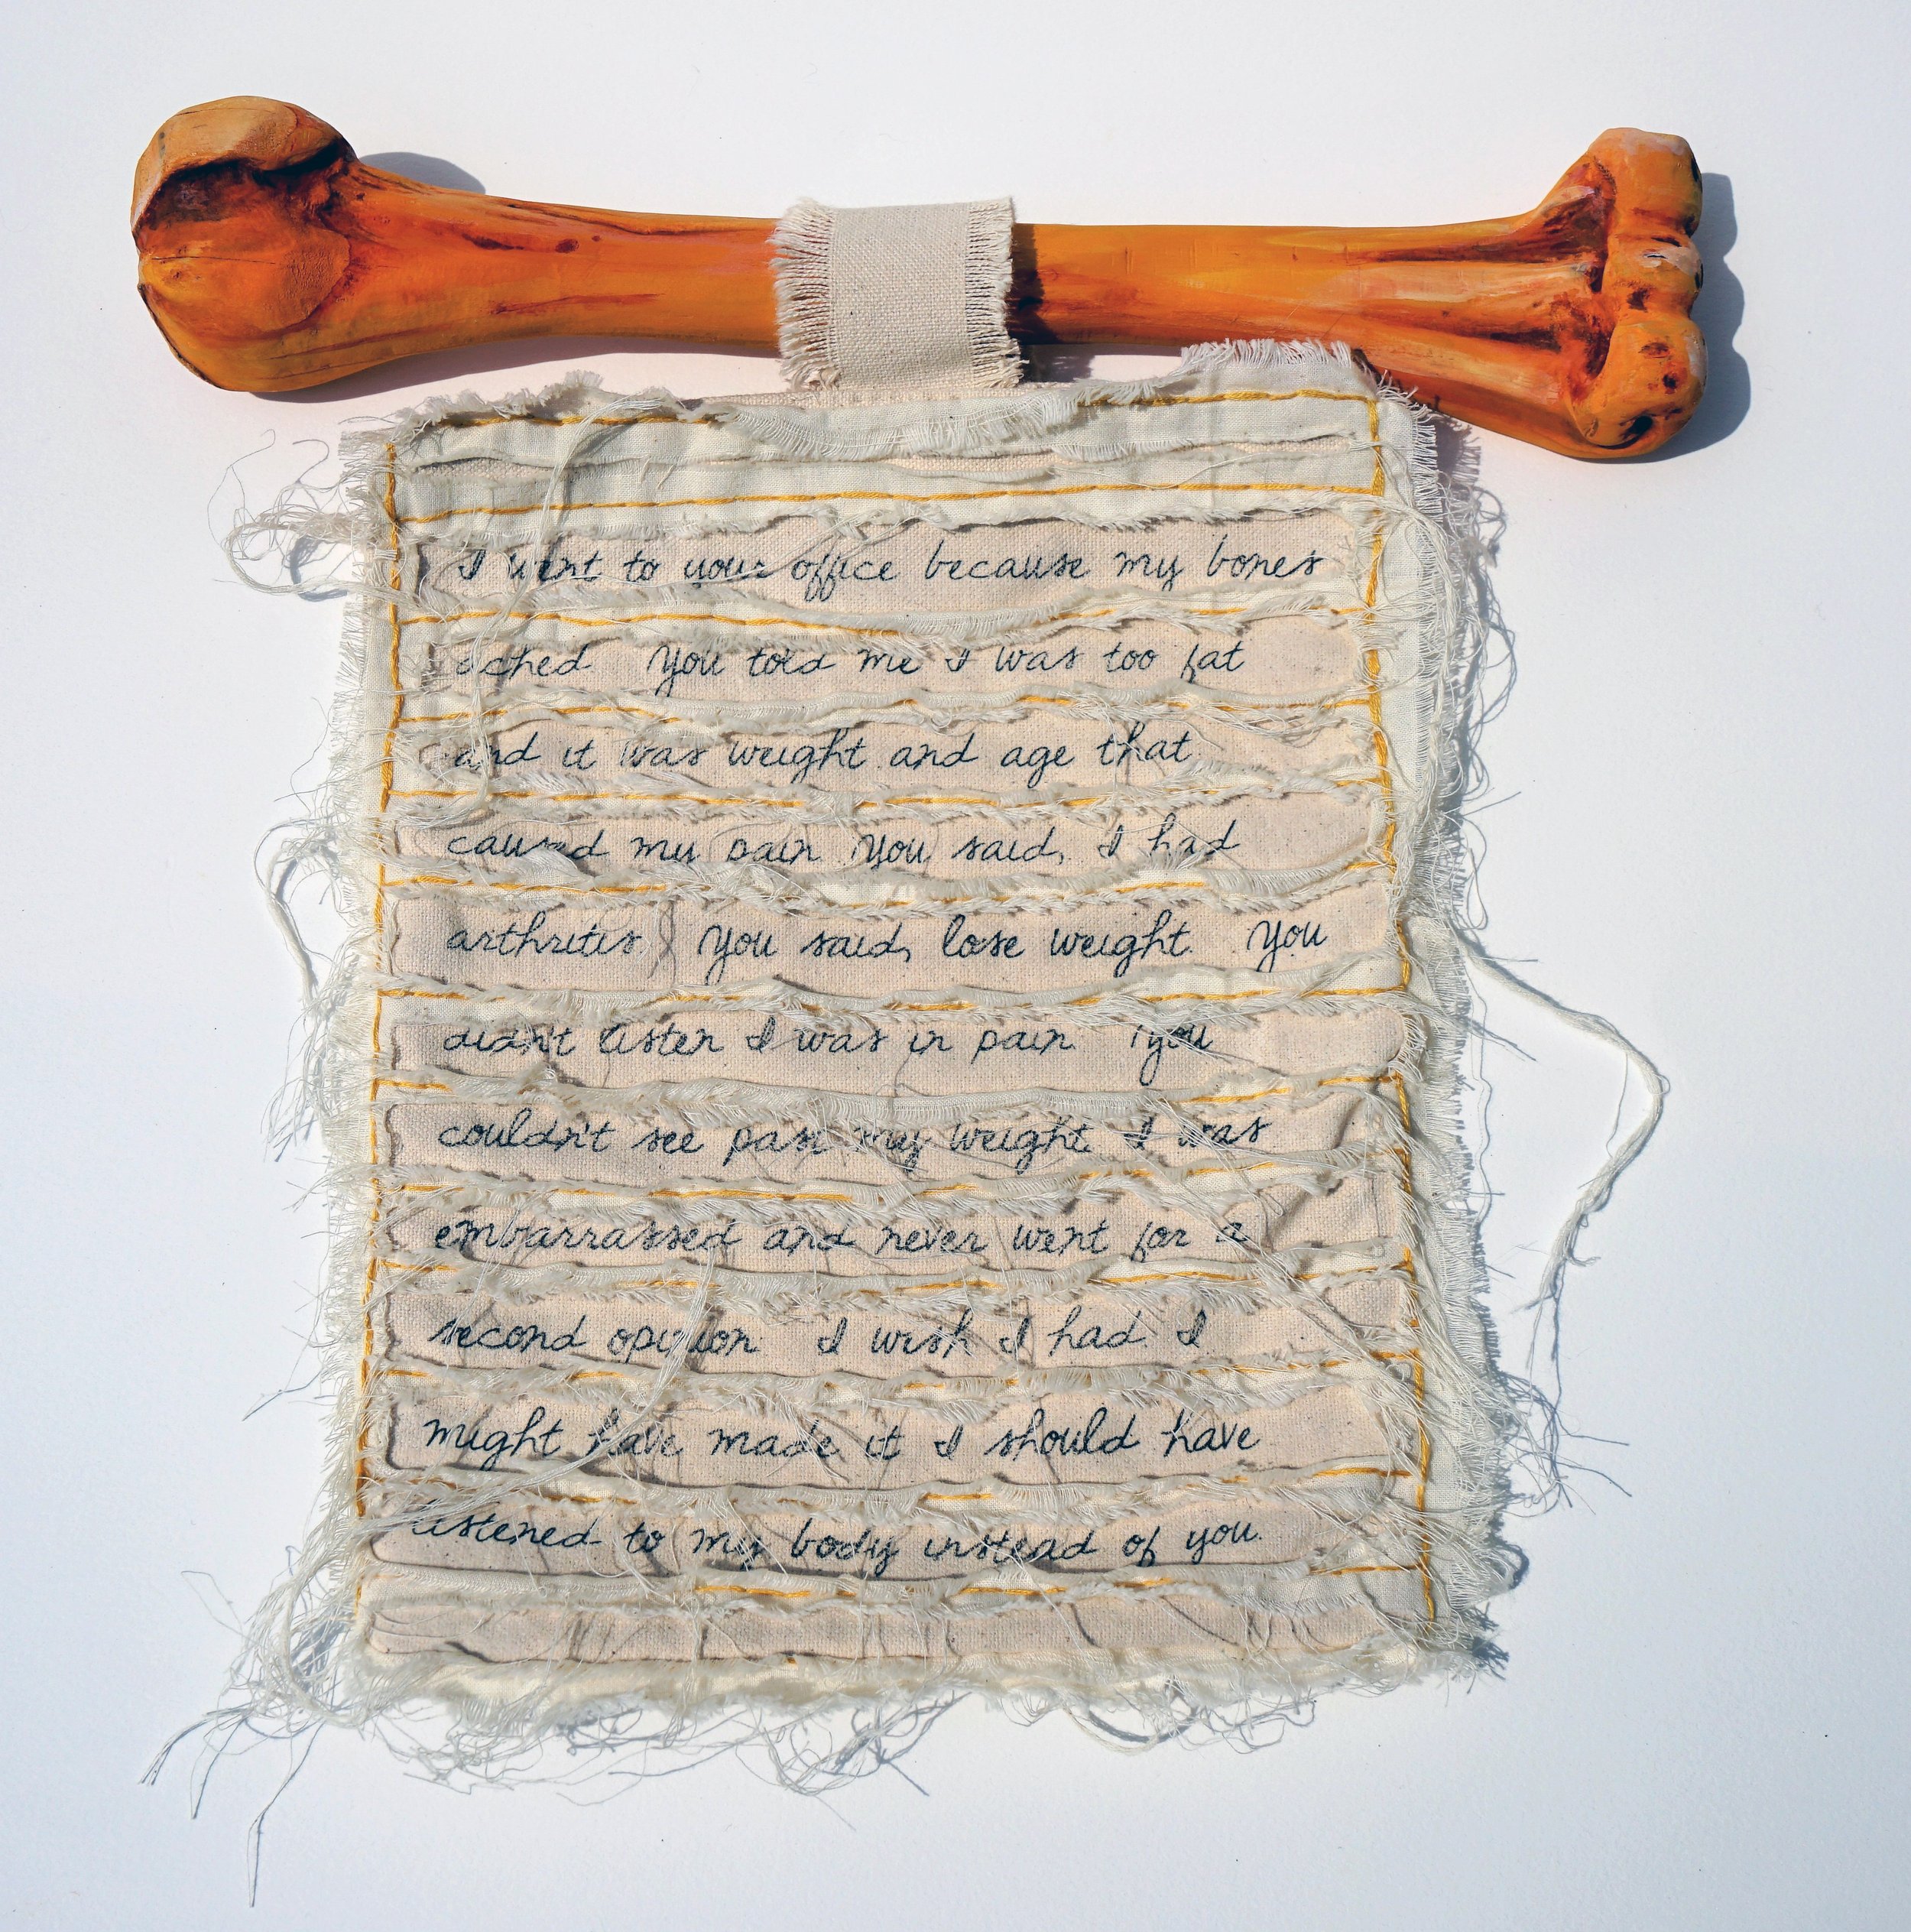 I went to your office because my bones
ached You told me I was too fat
and it was weight and age that
caused my pain You said, I had
arthritis. You said, lose weight. You
didn't listen I was in pain. You
couldn't see past my weight. I was
embarrassed and never went for a
second opinion. I wish I had. I
might have made it I should have
listened to my body instead of you.